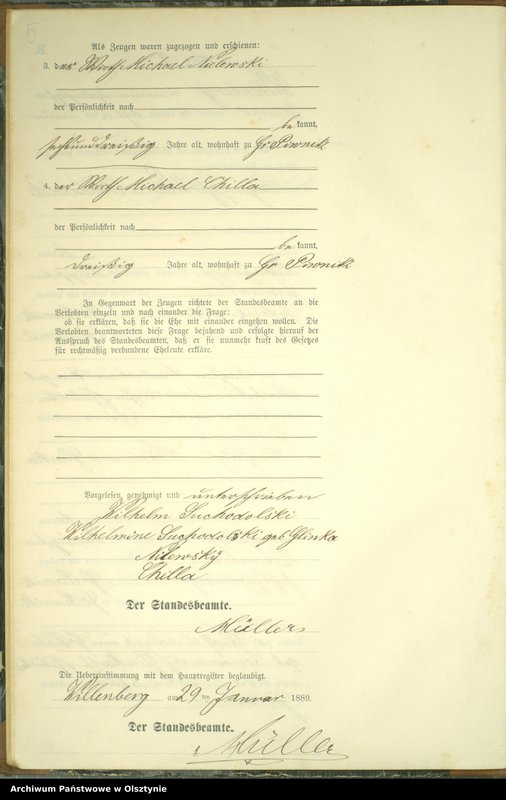 5
Als Zeugen waren zugezogen und erschienen:
3. der Wirth Michael Milewski
der Persönlichkeit nach
be kannt,
sechsunddreißig Jahre alt, wohnhaft zu Gr Piwnitz
4. der Wirth Michael Chilla
der Persönlichkeit nach
be kannt,
dreißig Jahre alt, wohnhaft zu Gr Piwnitz
In Gegenwart der Zeugen richtete der Standesbeamte an die
Verlobten einzeln und nach einander die Frage:
ob sie erklären, daß sie die Ehe mit einander eingehen wollen. Die
Verlobten beantworteten diese Frage bejahend und erfolgte hierauf der
Ausspruch des Standesbeamten, daß er sie nunmehr kraft des Gesetzes
für rechtmäßig verbundene Eheleute erkläre.
Vorgelesen, genehmigt und unterschrieben
Wilhelm Suchodolski
Wilhelmine Suchodolski geb Glinka
Milewsky
Chilla
Der Standesbeamte.
Müller
Die Uebereinstimmung mit dem Hauptregister beglaubigt.
Willenberg am 29 ten Januar 1889.
Der Standesbeamte.
Müller
Archiwum Państwowe w Olsztynie